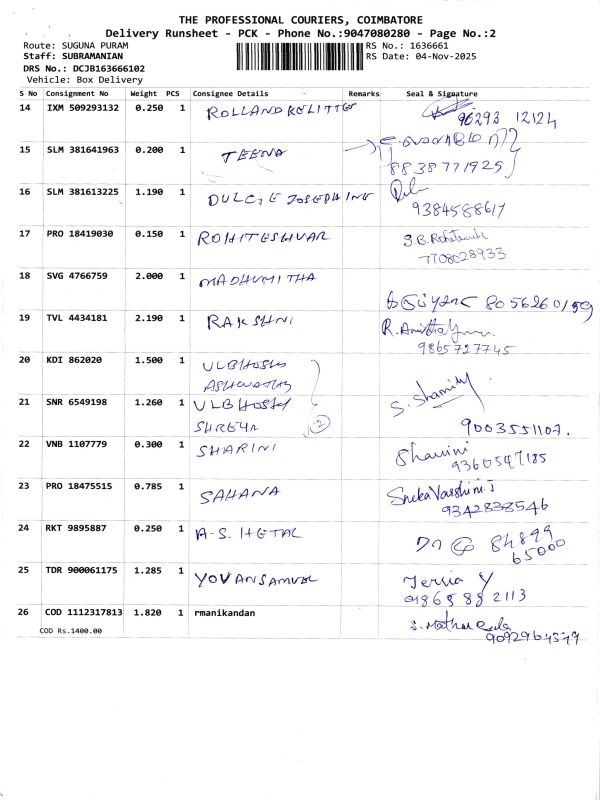 THE PROFESSIONAL COURIERS, COIMBATORE
Delivery Runsheet - PCK - Phone No.:9047080280 - Page No.:2
Route: SUGUNA PURAM RS No.: 1636661
Staff: SUBRAMANIAN RS Date: 04-Nov-2025
DRS No.: DCJB163666102
Vehicle: Box Delivery
S No Consignment No Weight PCS Consignee Details Remarks Seal & Signature
14 IXM 509293132 0.250 1 ROLLAND KELITTES 96293 12124
15 SLM 381641963 0.200 1 TEENA
8838771925
16 SLM 381613225 1.190 1 DULCIE JOSEPHINE
9384588617
17 PRO 18419030 0.150 1 ROHITESHVAR S.B.
7708028933
18 SVG 4766759 2.000 1 MADHUMITHA
8056260159
19 TVL 4434181 2.190 1 RAKSHNI R.
9865727745
20 KDI 862020 1.500 1 ULBHOSKY
ASHWATHY
21 SNR 6549198 1.260 1 ULBHOSKY S. Shamily
SHREYA 2 9003551107.
22 VNB 1107779 0.300 1 SHARINI Sharini
9360547185
23 PRO 18475515 0.785 1 SAHANA Sneka Varshini S
9342838546
24 RKT 9895887 0.250 1 A-S. HETAL 84899
65000
25 TDR 900061175 1.285 1 YOVANSAMUEL Jervia Y
9865882113
26 COD 1112317813 1.820 1 rmanikandan S.
COD Rs.1400.00 9092964579